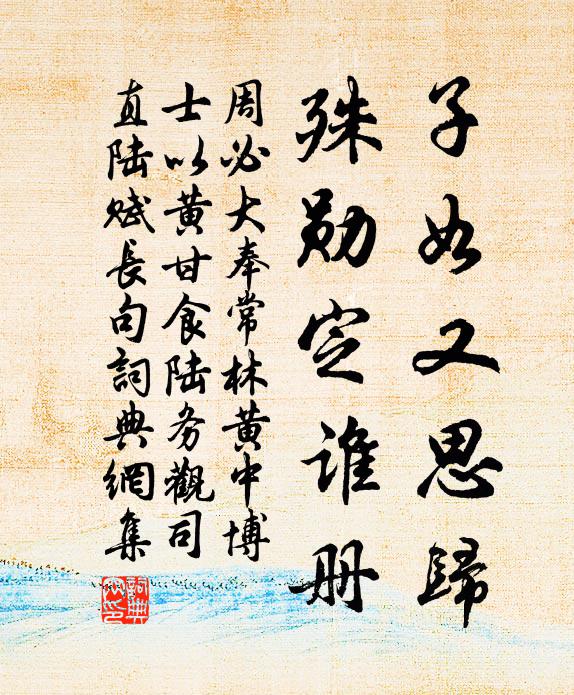 子如又思歸
殊勛定誰册
周必大奉常林黄中博
士以黄甘食陆务觀司
直陆赋長句詞典網集